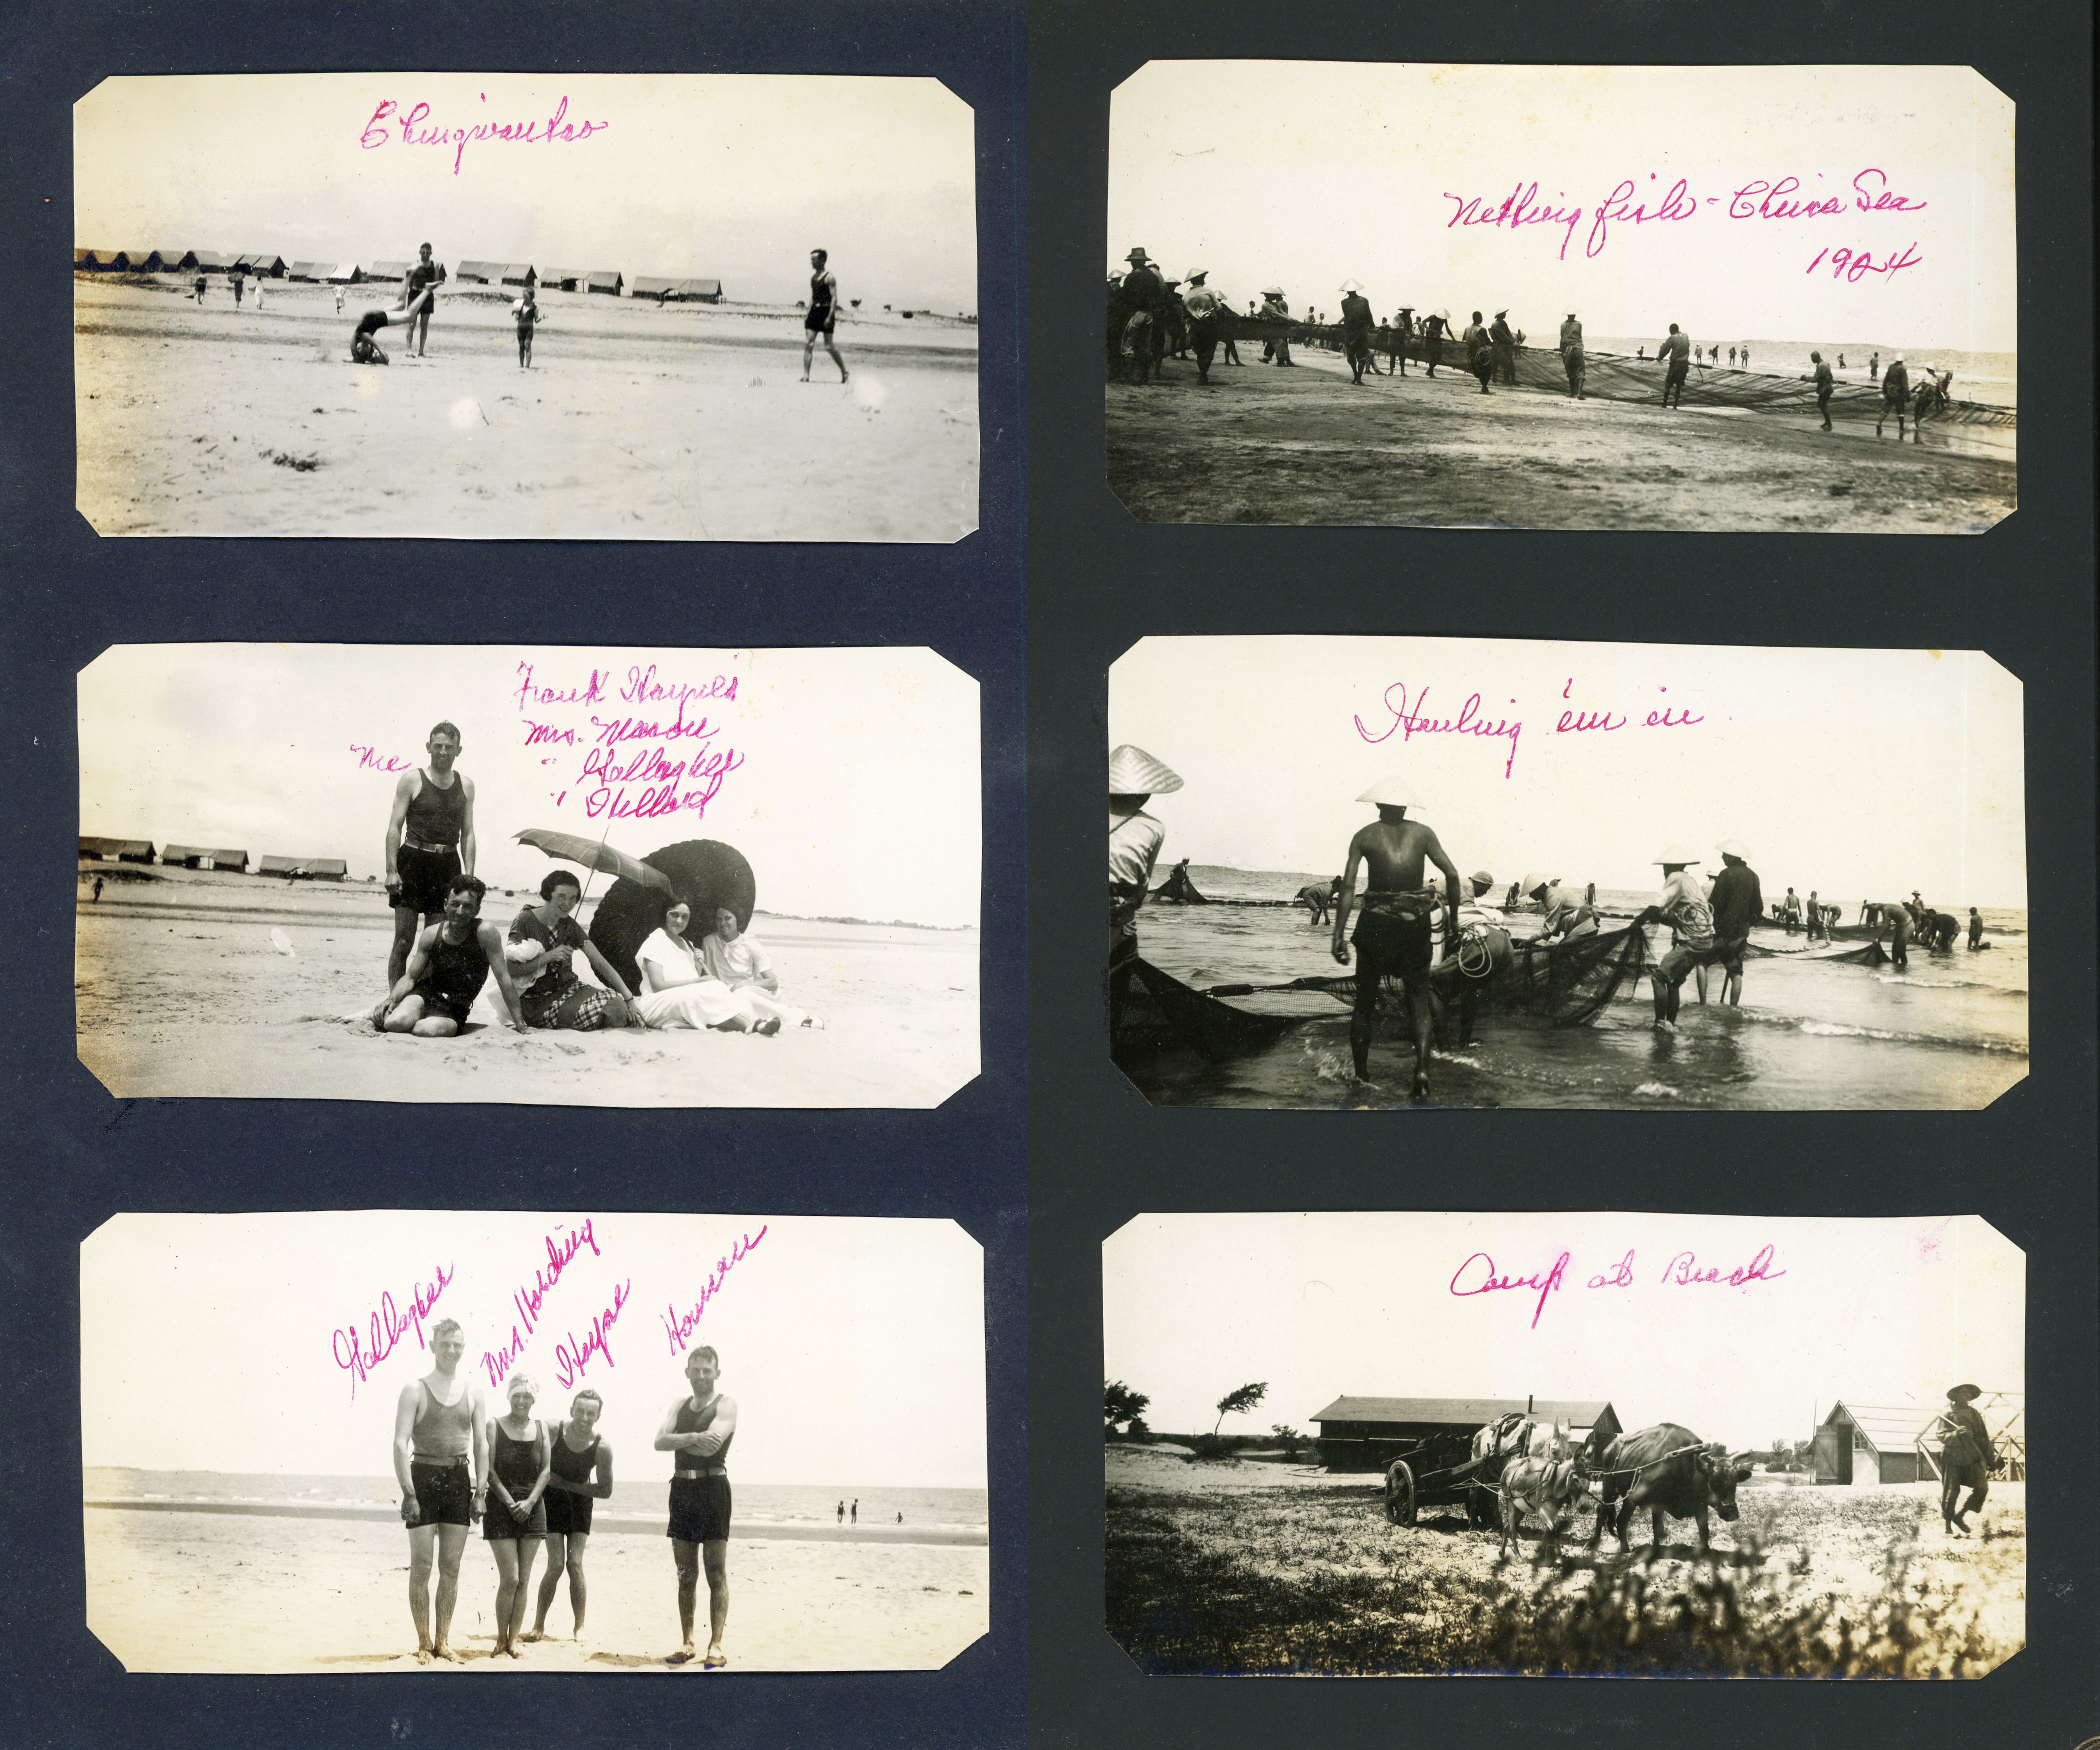 Chingwantao
Me
Frank Haynes
Mrs. Mason
" Gallagher
"
Gallagher
Mrs. Harding
Howsare
Netting fish - China Sea
1924
Hauling 'em in
Camp at Beach